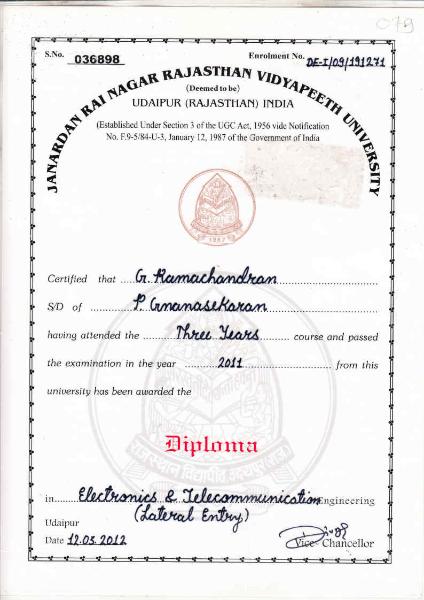 079
S.No. 036898
Enrolment No. DE-I/09/191271
JANARDAN RAI NAGAR RAJASTHAN VIDYAPEETH UNIVERSITY
(Deemed to be)
UDAIPUR (RAJASTHAN) INDIA
(Established Under Section 3 of the UGC Act, 1956 vide Notification
No. F.9-5/84-U-3, January 12, 1987 of the Government of India
1987
Certified that G. Ramachandran
S/D of P. Gnanasekaran
having attended the Three Years course and passed
the examination in the year 2011 from this
university has been awarded the
Diploma
in Electronics & Telecommunication Engineering
(Lateral Entry)
Udaipur
Date 12.05.2012
Vice-Chancellor